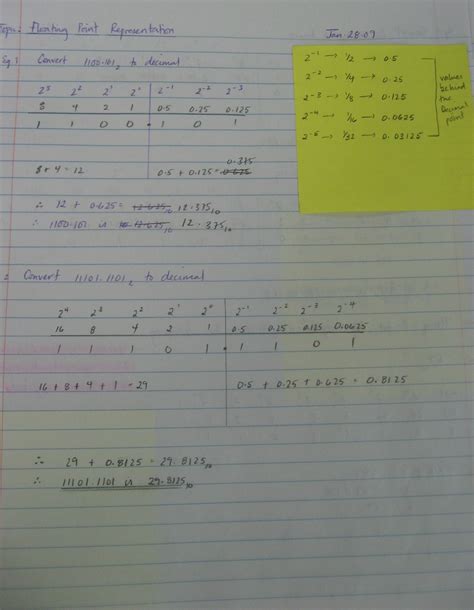 Topic: Floating Point Representation
Jan 28.09
Eg. 3 Convert 1100.101₂ to decimal
2³ 2² 2¹ 2⁰ 2⁻¹ 2⁻² 2⁻³
8 4 2 1 0.5 0.25 0.125
1 1 0 0 . 1 0 1
0.375
8 + 4 = 12 0.5 + 0.125 = 0.625
∴ 12 + 0.625 = 12.625₁₀ 12.375₁₀
∴ 1100.101 is 12.625₁₀ 12.375₁₀
2⁻¹ → 1/2 → 0.5
2⁻² → 1/4 → 0.25
2⁻³ → 1/8 → 0.125
2⁻⁴ → 1/16 → 0.0625
2⁻⁵ → 1/32 → 0.03125
values
behind
the
Decimal
point
2. Convert 11101.1101₂ to decimal
2⁴ 2³ 2² 2¹ 2⁰ 2⁻¹ 2⁻² 2⁻³ 2⁻⁴
16 8 4 2 1 0.5 0.25 0.125 0.0625
1 1 1 0 1 . 1 1 0 1
16 + 8 + 4 + 1 = 29 0.5 + 0.25 + 0.625 = 0.8125
∴ 29 + 0.8125 = 29.8125₁₀
∴ 11101.1101 is 29.8125₁₀